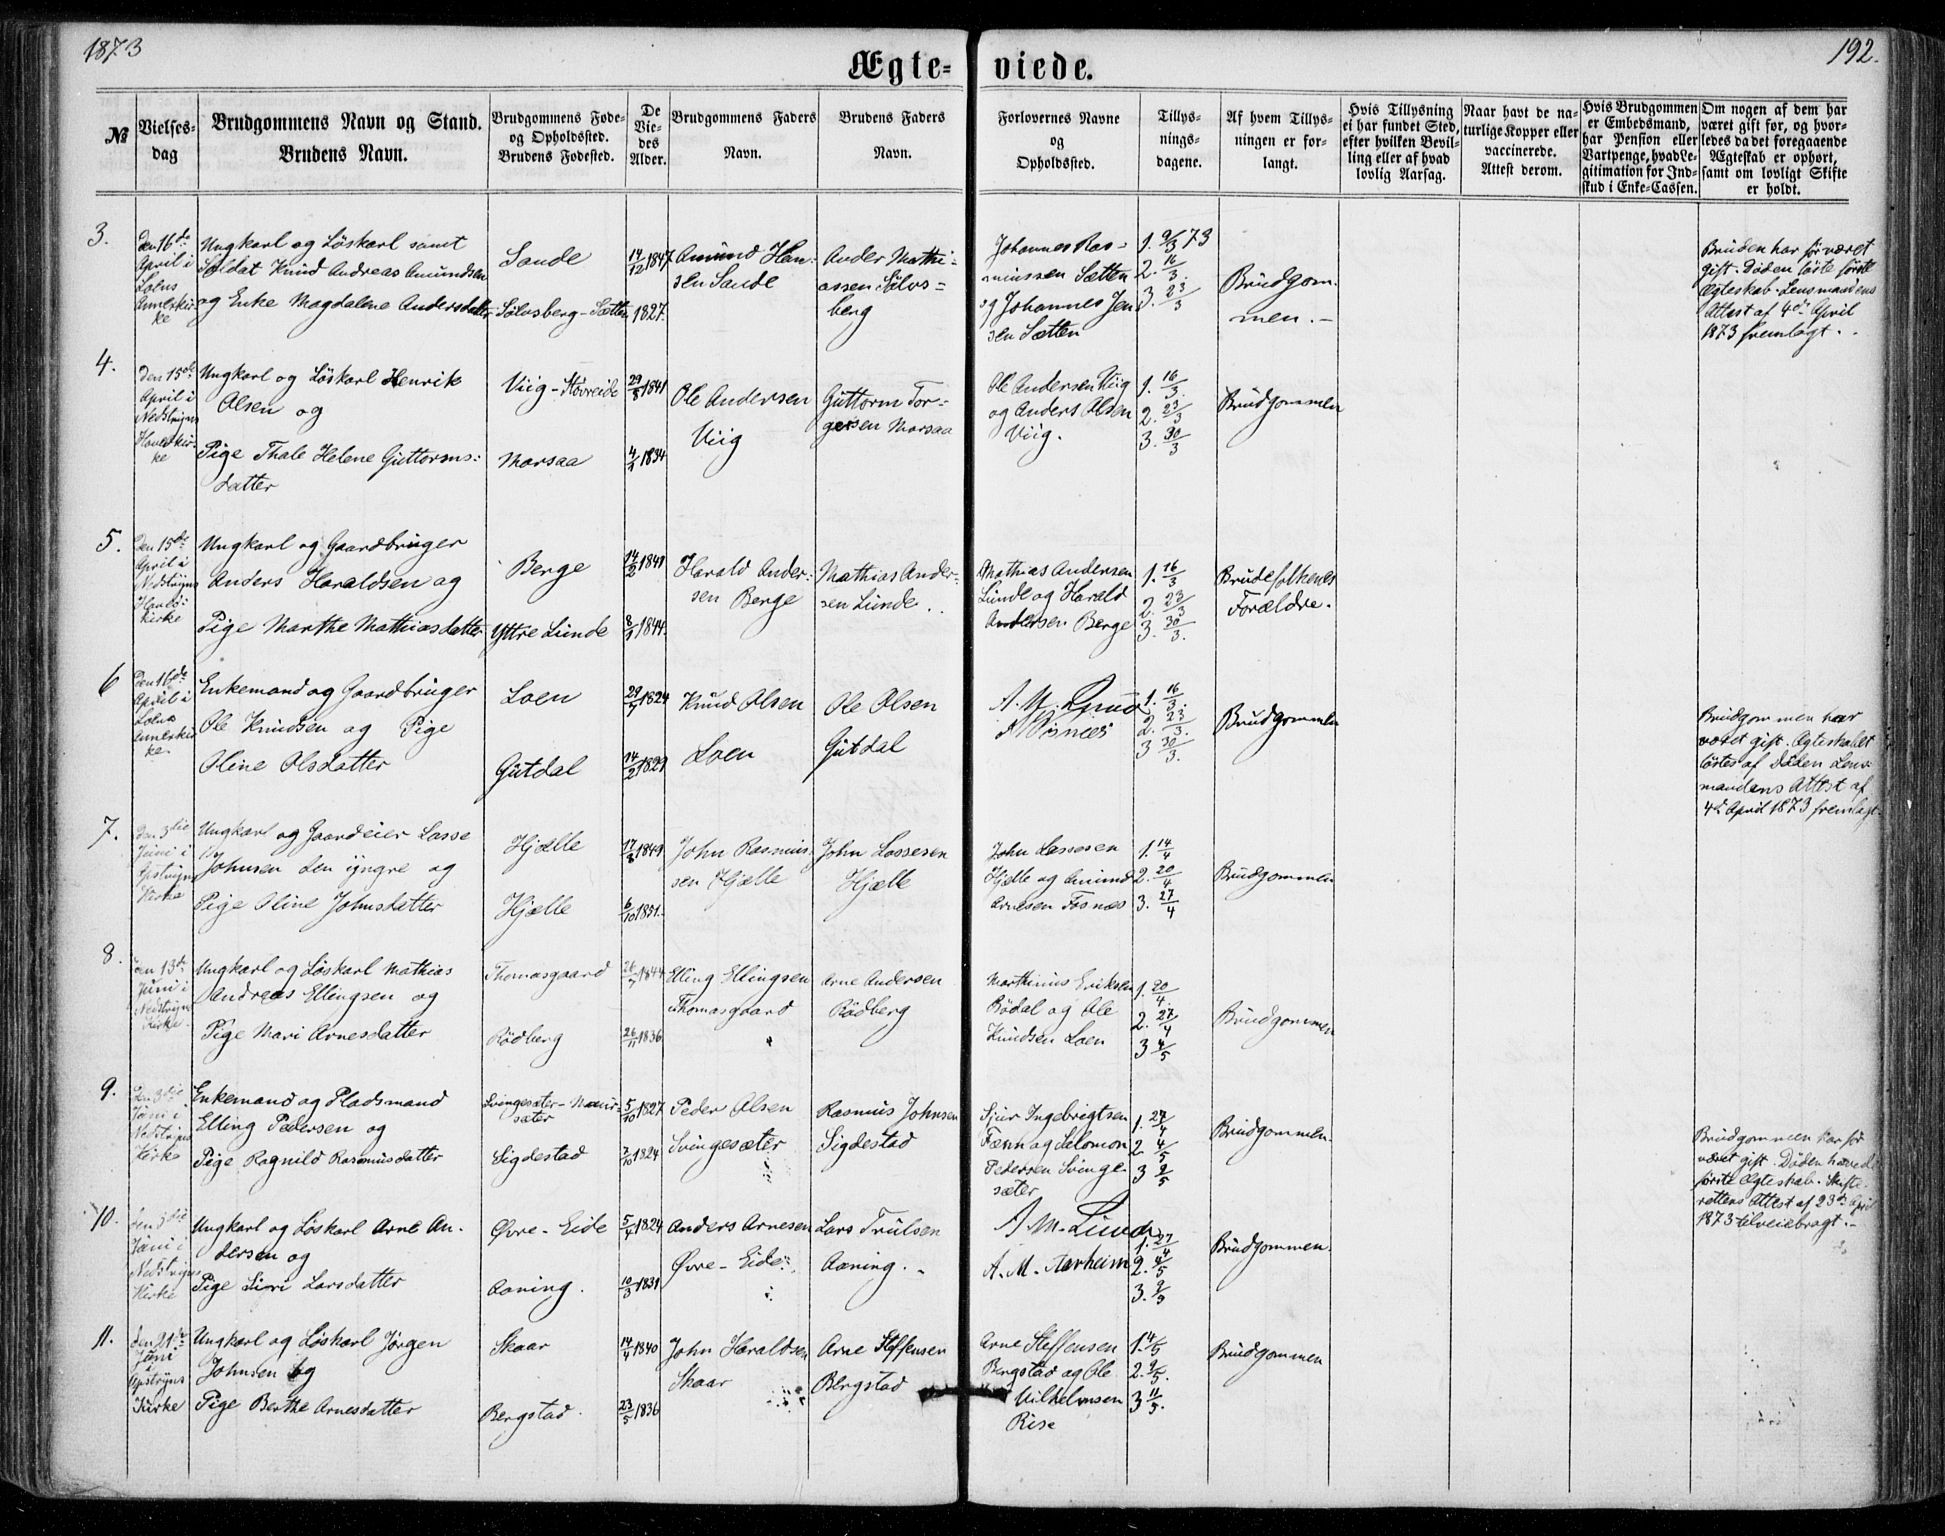 1873
192.
Ægte- viede.
№
Vielses-
dag
Brudgommens Navn og Stand.
Brudens Navn.
Brudgommens Føde-
og Opholdssted.
Brudens Fødested.
De
Vie-
des
Alder.
Brudgommens Faders
Navn.
Brudens Faders
Navn.
Forlovernes Navne
og
Opholdssted.
Tillys-
nings-
dagene.
Af hvem Tillys-
ningen er for-
langt.
Hvis Tillysning
ei har fundet Sted,
efter hvilken Bevil-
ling eller af hvad
lovlig Aarsag.
Naar havt de na-
turlige Kopper eller
vaccinerede.
Attest derom.
Hvis Brudgommen
er Embedsmand,
har Pension eller
Vartpenge, hvad Le-
gitimation for Ind-
skud i Enke-Cassen.
Om nogen af dem har
været gift før, og hvor-
ledes da det foregaaende
Ægteskab er ophørt,
samt om lovligt Skifte
er holdt.
3.
den 16de
April i
Loens
Annexkir-
ke
Ungkarl og Løskarl samt
Soldat Knud Andreas Amundsen
og Enke Magdalene Andersdatter
Sande
Sølvsberg - Sætten
14/12 1847
1827.
Amund Han-
sen Sande
Ander Mathi-
assen Sølvs-
berg
Johannes Ras-
mussen Sætten
og Johannes Jen
sen Sætten
1. 9/3 73
2. 16/3.
3. 23/3
Brudgom-
men. -
Bruden har før været
gift. Døden løste første
Ægteskab. Lensmandens
Attest af 4de April
1873 fremlagt. -
4.
den 15de
April i
Nedstryns
Hoved kir-
ke
Ungkarl og Løskarl Henrik
Olsen og
Pige Thale Helene Guttorms-
datter
Viig - Støvreide
Marsaa
1841
1834
Ole Andersen
Viig
Guttorm Tor-
gersen Marsaa
Ole Andersen Viig
og Anders Olsen
Viig.
1. 16/3.
2. 23/3
3. 30/3
Brudgommen
5.
den 15de
April i
Nedstryns
Hoved-
kirke
Ungkarl og Gaardbruger
Anders Haraldsen og
Pige Marthe Mathiasdatter
Berge
Yttre Lunde
14/2
1844.
Harald Ander-
sen Berge
Mathias Ander-
sen Lunde
Mathias Andersen
Lunde og Harald
Andersen Berge
1. 16/3
2. 23/3
3. 30/3.
Brudefolkenes
Forældre.
6
den 16de
April i
Loens
Annexkir
ke
Enkemand og Gaardbruger
Ole Knudsen og Pige
Oline Olsdatter
Loen
Gutdal
1824
14/2 1829
Knud Olsen
Loen
Ole Olsen
Gutdal
A. M.
1. 16/3.
2. 23/3.
3 30/3.
Brudgommen
Brudgommen har
været gift. Ægteskabet
løstes af Døden Lens-
mandens Attest af
4de April 1873 fremlagt.
7.
den 3die
Juni i
Opstryns
Kirke
Ungkarl og Gaardeier Lasse
Johnsen den yngre og
Pige Oline Johnsdatter
Hjelle
Hjelle
17/8 1849
6/10 1851.
John Rasmus-
sen Hjelle
John Lassesen
Hjelle
John Lassesen
Hjelle og Amund
Arnesen Fosnæs
1. 14/4
2. 20/4
3. 27/4
Brudgommen
8.
den 13de
Juni i
Nedstryns
Kirke.
Ungkarl og Løskarl Mathias
Andreas Ellingsen og
Pige Mari Arnesdatter
Thomasgaard
Rödberg
1844
26/11 1836
Elling Ellingsen
Thomasgaard
Arne Andersen
Rödberg
Marthinus Eriksen
Rödal og Ole
Knudsen Loen
1. 20/4.
2. 27/4
3 4/5
Brudgommen
9.
den 3die
Juni i
Nedstryns
Kirke
Enkemand og Pladsmand
Elling Pedersen og
Pige Ragnild Rasmusdatter
sæter
Sigdestad
5/10 1827
7/10 1824
Peder Olsen
Svingesæter
Rasmus Johnsen
Sigdestad
Sjur Ingebrigtsen
Fænn og Salomon
Pedersen Svinge-
sæter
1. 27/4
2 4/5
3 9/5
Brudgommen.
Brudgommen har før
været gift. Døden hævede
første Ægteskab. Skifte-
rettens Attest af 23de April
1873 tilveiebragt. -
10.
den 3die
Juni i
Nedstryns
Kirke
Ungkarl og Løskarl Arne An-
dersen og
Pige Siri Larsdatter
Øvre - Eide
Aaning.
5/4 1824
10/3 1831
Anders Arnesen
Øvre - Eide
Lars Trulsen
Aaning. -
A. M. Lunde
A. M. Aarheim
1. 27/4
2. 4/5
3. 9/5
Brudgommen.
11.
den 21de
Juni
i
Opstryns
Kirke
Ungkarl og Løskarl Jørgen
Johnsen og
Pige Berthe Arnesdatter
Skaar
Bergstad.
14/4 1840
23/5 1836
John Haraldsen
Skaar
Arne Steffensen
Bergstad
Arne Steffensen
Bergstad og Ole
Vilhelmsen
Rise
1. 4/5
2. 9/5.
3 11/5.
Brudgommen